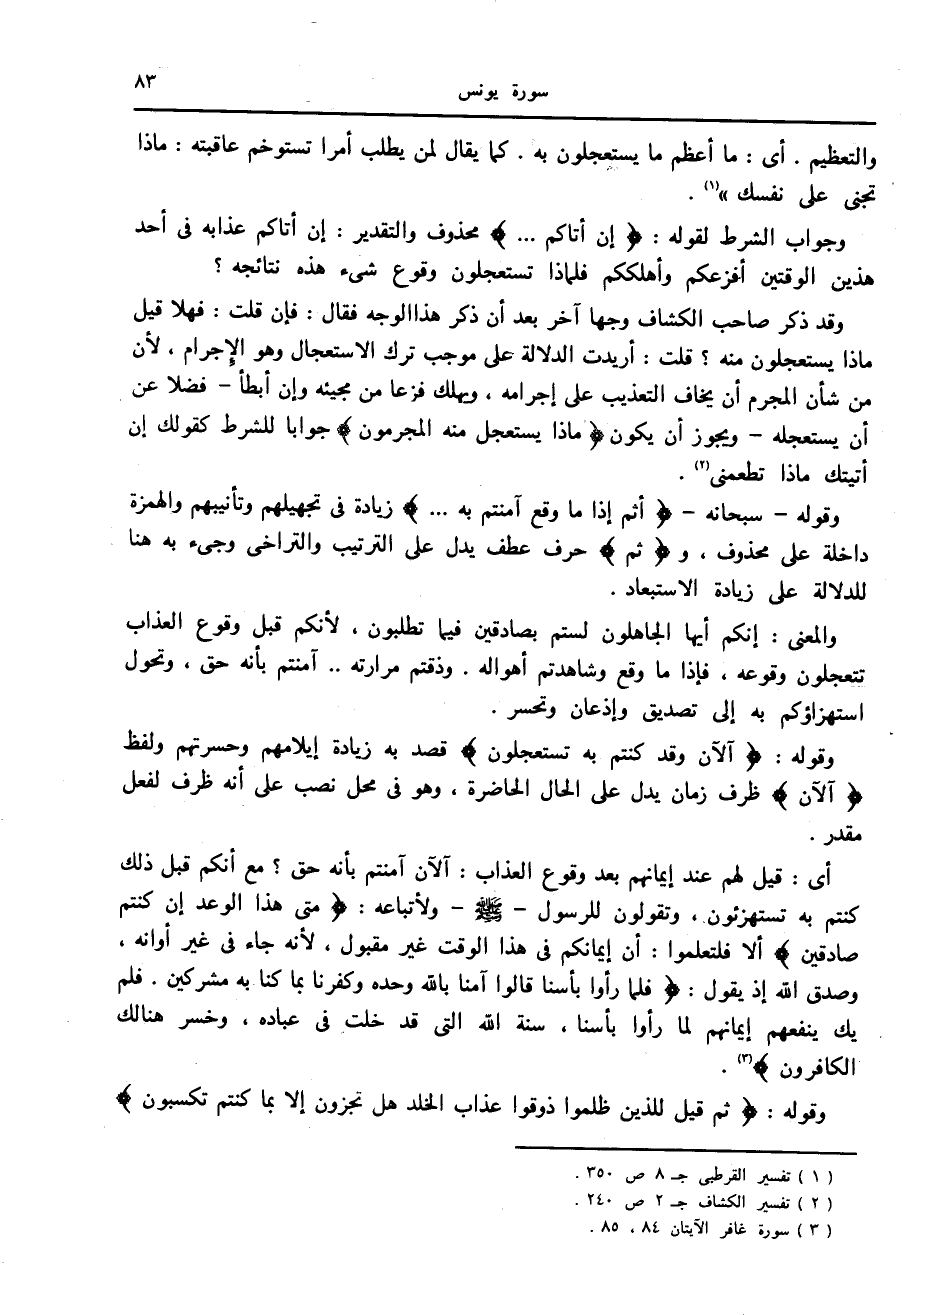 سورة يونس
٨٣
والتعظيم . أى : ما أعظم ما يستعجلون به . كما يقال لمن يطلب أمرا تستوخم عاقبته : ماذا
تجنى على نفسك »(١) .
وجواب الشرط لقوله : ﴿ إن أتاكم ... ﴾ محذوف والتقدير : إن أتاكم عذابه فى أحد
هذين الوقتين أفزعكم وأهلككم فلماذا تستعجلون وقوع شىء هذه نتائجه ؟
وقد ذكر صاحب الكشاف وجها آخر بعد أن ذكر هذاالوجه فقال : فإن قلت : فهلا قيل
ماذا يستعجلون منه ؟ قلت : أريدت الدلالة على موجب ترك الاستعجال وهو الإجرام ، لأن
من شأن المجرم أن يخاف التعذيب على إجرامه ، ويهلك فزعا من مجيئه وإن أبطأ – فضلا عن
أن يستعجله – ويجوز أن يكون ﴿ ماذا يستعجل منه المجرمون ﴾ جوابا للشرط كقولك إن
أتيتك ماذا تطعمنى(٢) .
وقوله – سبحانه – ﴿ أثم إذا ما وقع آمنتم به ... ﴾ زيادة فى تجهيلهم وتأنيبهم والهمزة
داخلة على محذوف ، و ﴿ ثم ﴾ حرف عطف يدل على الترتيب والتراخى وجىء به هنا
للدلالة على زيادة الاستبعاد .
والمعنى : إنكم أيها الجاهلون لستم بصادقين فيما تطلبون ، لأنكم قبل وقوع العذاب
تتعجلون وقوعه ، فإذا ما وقع وشاهدتم أهواله . وذقتم مرارته .. آمنتم بأنه حق ، وتحول
استهزاؤكم به إلى تصديق وإذعان وتحسر .
وقوله : ﴿ آلآن وقد كنتم به تستعجلون ﴾ قصد به زيادة إيلامهم وحسرتهم ولفظ
﴿ آلآن ﴾ ظرف زمان يدل على الحال الحاضرة ، وهو فى محل نصب على أنه ظرف لفعل
مقدر .
أى : قيل لهم عند إيمانهم بعد وقوع العذاب : آلآن آمنتم بأنه حق ؟ مع أنكم قبل ذلك
كنتم به تستهزئون ، وتقولون للرسول – ﷺ – ولأتباعه : ﴿ متى هذا الوعد إن كنتم
صادقين ﴾ ألا فلتعلموا : أن إيمانكم فى هذا الوقت غير مقبول ، لأنه جاء فى غير أوانه ،
وصدق الله إذ يقول : ﴿ فلما رأوا بأسنا قالوا آمنا بالله وحده وكفرنا بما كنا به مشركين . فلم
يك ينفعهم إيمانهم لما رأوا بأسنا ، سنة الله التى قد خلت فى عباده ، وخسر هنالك
الكافرون ﴾(٣) .
وقوله : ﴿ ثم قيل للذين ظلموا ذوقوا عذاب الخلد هل تجزون إلا بما كنتم تكسبون ﴾
( ١ ) تفسير القرطبى جـ ٨ ص ٣٥٠ .
( ٢ ) تفسير الكشاف جـ ٢ ص ٢٤٠ .
( ٣ ) سورة غافر الآيتان ٨٤ ، ٨٥ .